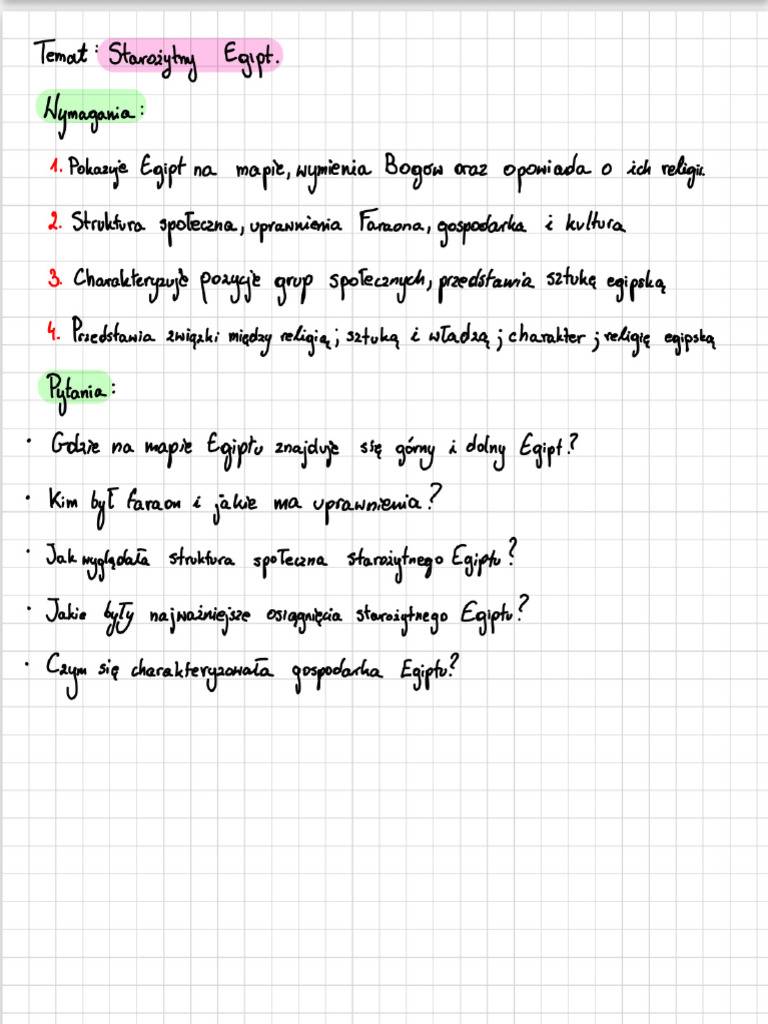 Temat: Starożytny Egipt.
Wymagania:
1. Pokazuje Egipt na mapie, wymienia Bogów oraz opowiada o ich religii.
2. Struktura społeczna, uprawnienia Faraona, gospodarka i kultura
3. Charakteryzuje pozycje grup społecznych, przedstawia sztukę egipską
4. Przedstawia związki między religią; sztuką i władzą; charakter; religię egipską
Pytania:
· Gdzie na mapie Egiptu znajduje się górny i dolny Egipt?
· Kim był faraon i jakie ma uprawnienia?
· Jak wyglądała struktura społeczna starożytnego Egiptu?
· Jakie były najważniejsze osiągnięcia starożytnego Egiptu?
· Czym się charakteryzowała gospodarka Egiptu?